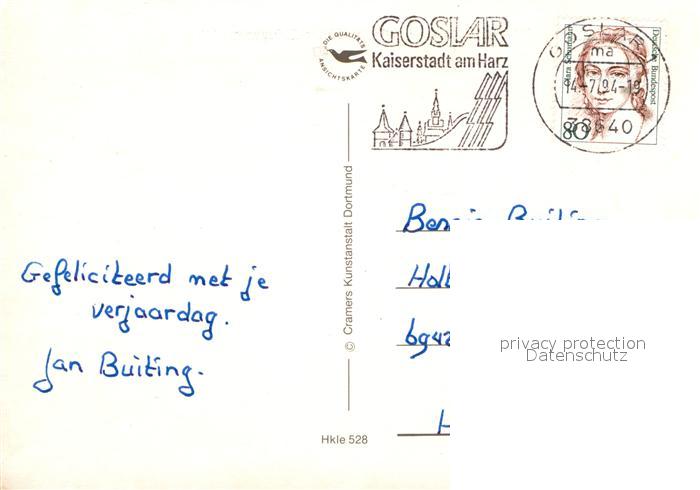 DIE QUALITÄTS
ANSICHTSKARTE
GOSLAR
Kaiserstadt am Harz
Clara Schumann
Deutsche Bundespost
80
GOSLAR 1
ma
14.-7.94-19
38640
© Cramers Kunstanstalt Dortmund
Hkle 528
Gefeliciteerd met je
verjaardag.
Jan Buiting.
Buiting
Holl
6942
H
privacy protection
Datenschutz